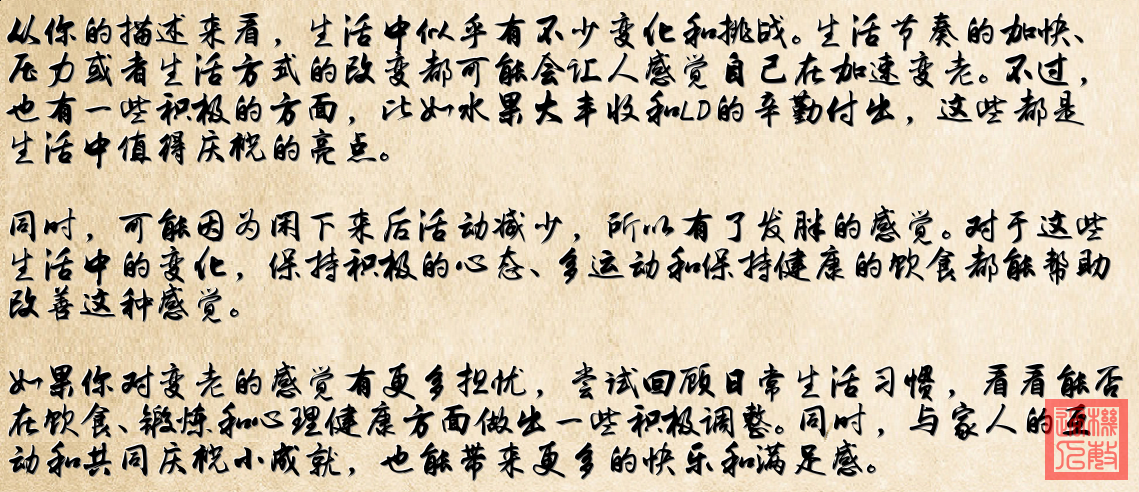 从你的描述来看，生活中似乎有不少变化和挑战。生活节奏的加快、
压力或者生活方式的改变都可能会让人感觉自己在加速变老。不过，
也有一些积极的方面，比如水果大丰收和LD的辛勤付出，这些都是
生活中值得庆祝的亮点。
同时，可能因为闲下来后活动减少，所以有了发胖的感觉。对于这些
生活中的变化，保持积极的心态、多运动和保持健康的饮食都能帮助
改善这种感觉。
如果你对变老的感觉有更多担忧，尝试回顾日常生活习惯，看看能否
在饮食、锻炼和心理健康方面做出一些积极调整。同时，与家人的互
动和共同庆祝小成就，也能带来更多的快乐和满足感。